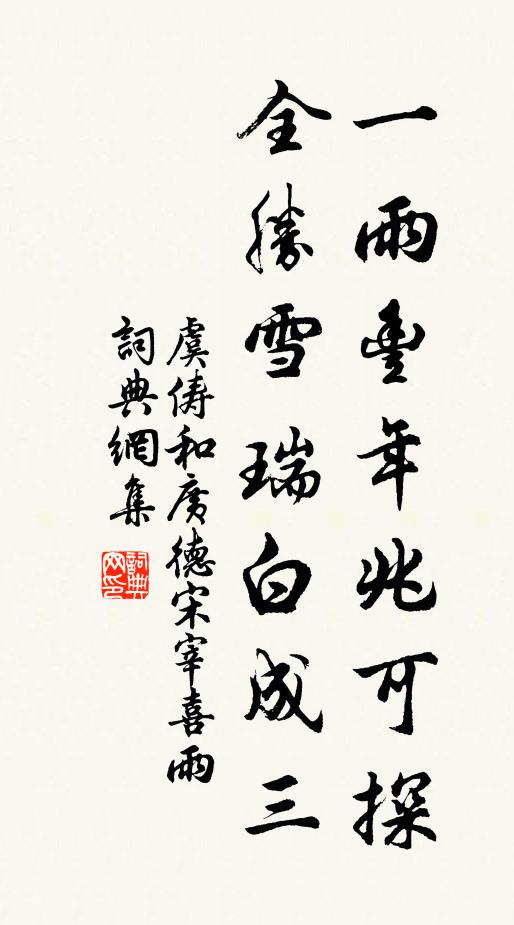 一雨豐年兆可探
全勝雪瑞白成三
虞儔和廣德宋宰喜雨
詞典網集
詞典網印